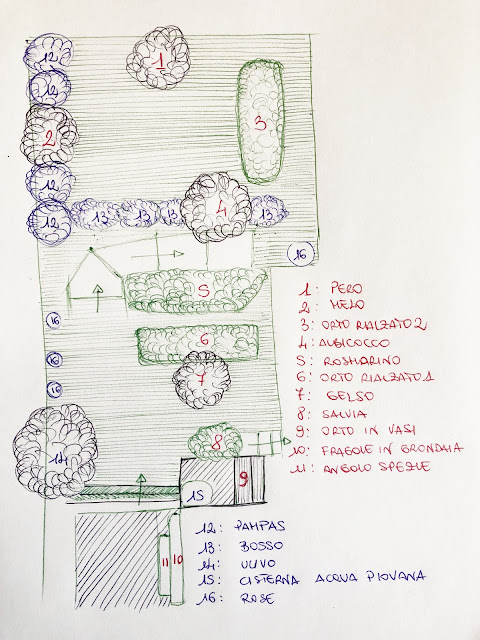 12
1
12
3
2
12
12
13
13
13
4
13
16
5
16
6
16
16
7
8
14
15
9
11
10
1: PERO
2: MELO
3: ORTO RIALZATO 2
4: ALBICOCCO
5: ROSMARINO
6: ORTO RIALZATO 1
7: GELSO
8: SALVIA
9: ORTO IN VASI
10: FRAGOLE IN GRONDAIA
11: ANGOLO SPEZIE
12: PAMPAS
13: BOSSO
14: ULIVO
15: CISTERNA ACQUA PIOVANA
16: ROSE